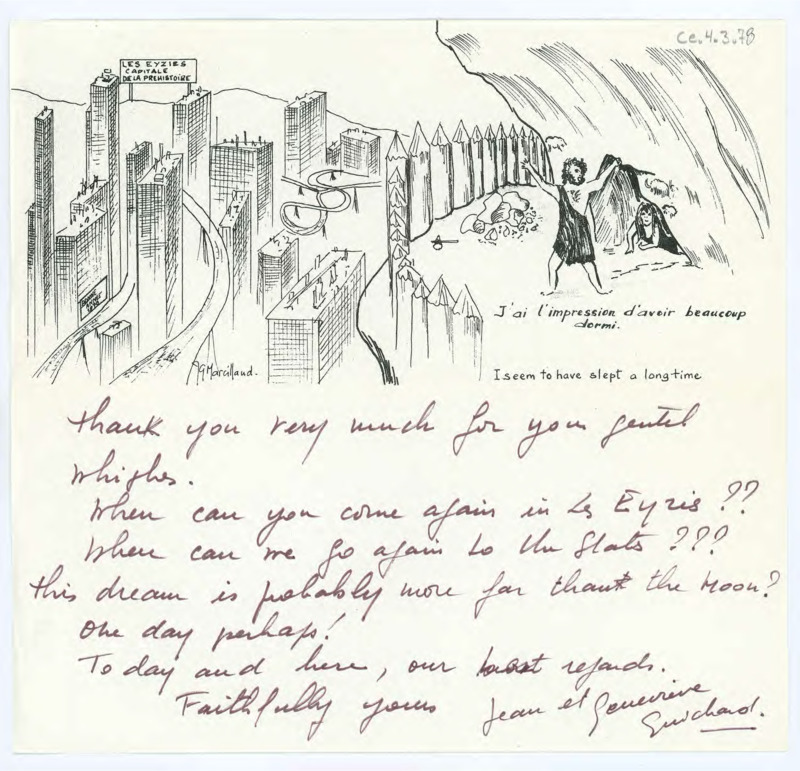 ce.4.3.78
LES EYZIES
CAPITALE
DE LA PREHISTOIRE
J'ai l'impression d'avoir beaucoup
dormi.
I seem to have slept a long time
JGMarcillaud.
thank you very much for your gentil
whishes.
When can you come again in Les Eyzies ??
When can we go again to the States ???
this dream is probably more far than the Moon?
One day perhaps!
To day and here, our best regards.
Faithfully yours Jean et Geneviève
Guichard.